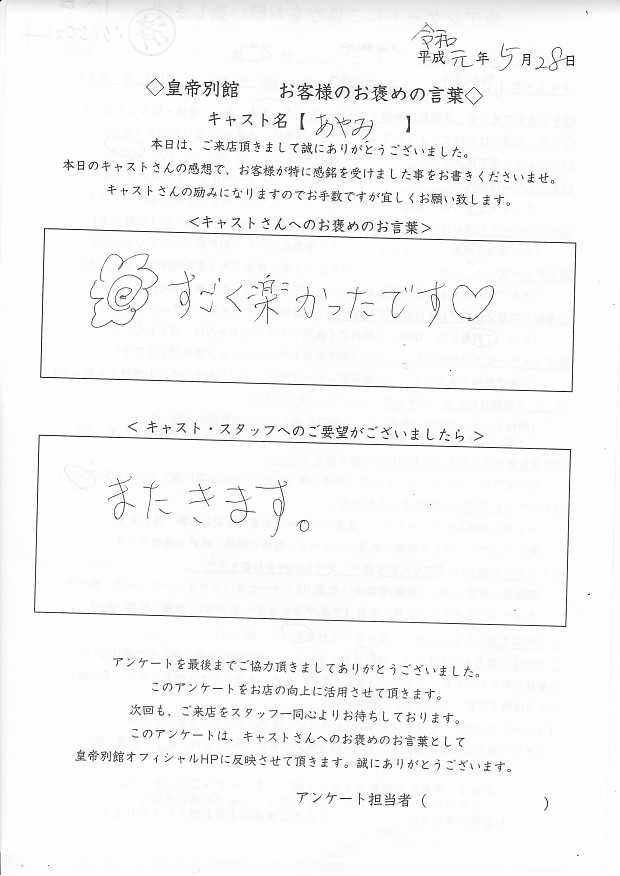 令和
平成 元 年 5 月 28 日
◇皇帝別館　お客様のお褒めの言葉◇
キャスト名【 あやみ 】
本日は、ご来店頂きまして誠にありがとうございました。
本日のキャストさんの感想で、お客様が特に感銘を受けました事をお書きくださいませ。
キャストさんの励みになりますのでお手数ですが宜しくお願い致します。
<キャストさんへのお褒めのお言葉>
すごく楽しかったです♡
< キャスト・スタッフへのご要望がございましたら >
またきます。
アンケートを最後までご協力頂きましてありがとうございました。
このアンケートをお店の向上に活用させて頂きます。
次回も、ご来店をスタッフ一同心よりお待ちしております。
このアンケートは、キャストさんへのお褒めのお言葉として
皇帝別館オフィシャルHPに反映させて頂きます。誠にありがとうございます。
アンケート担当者（　　　　）